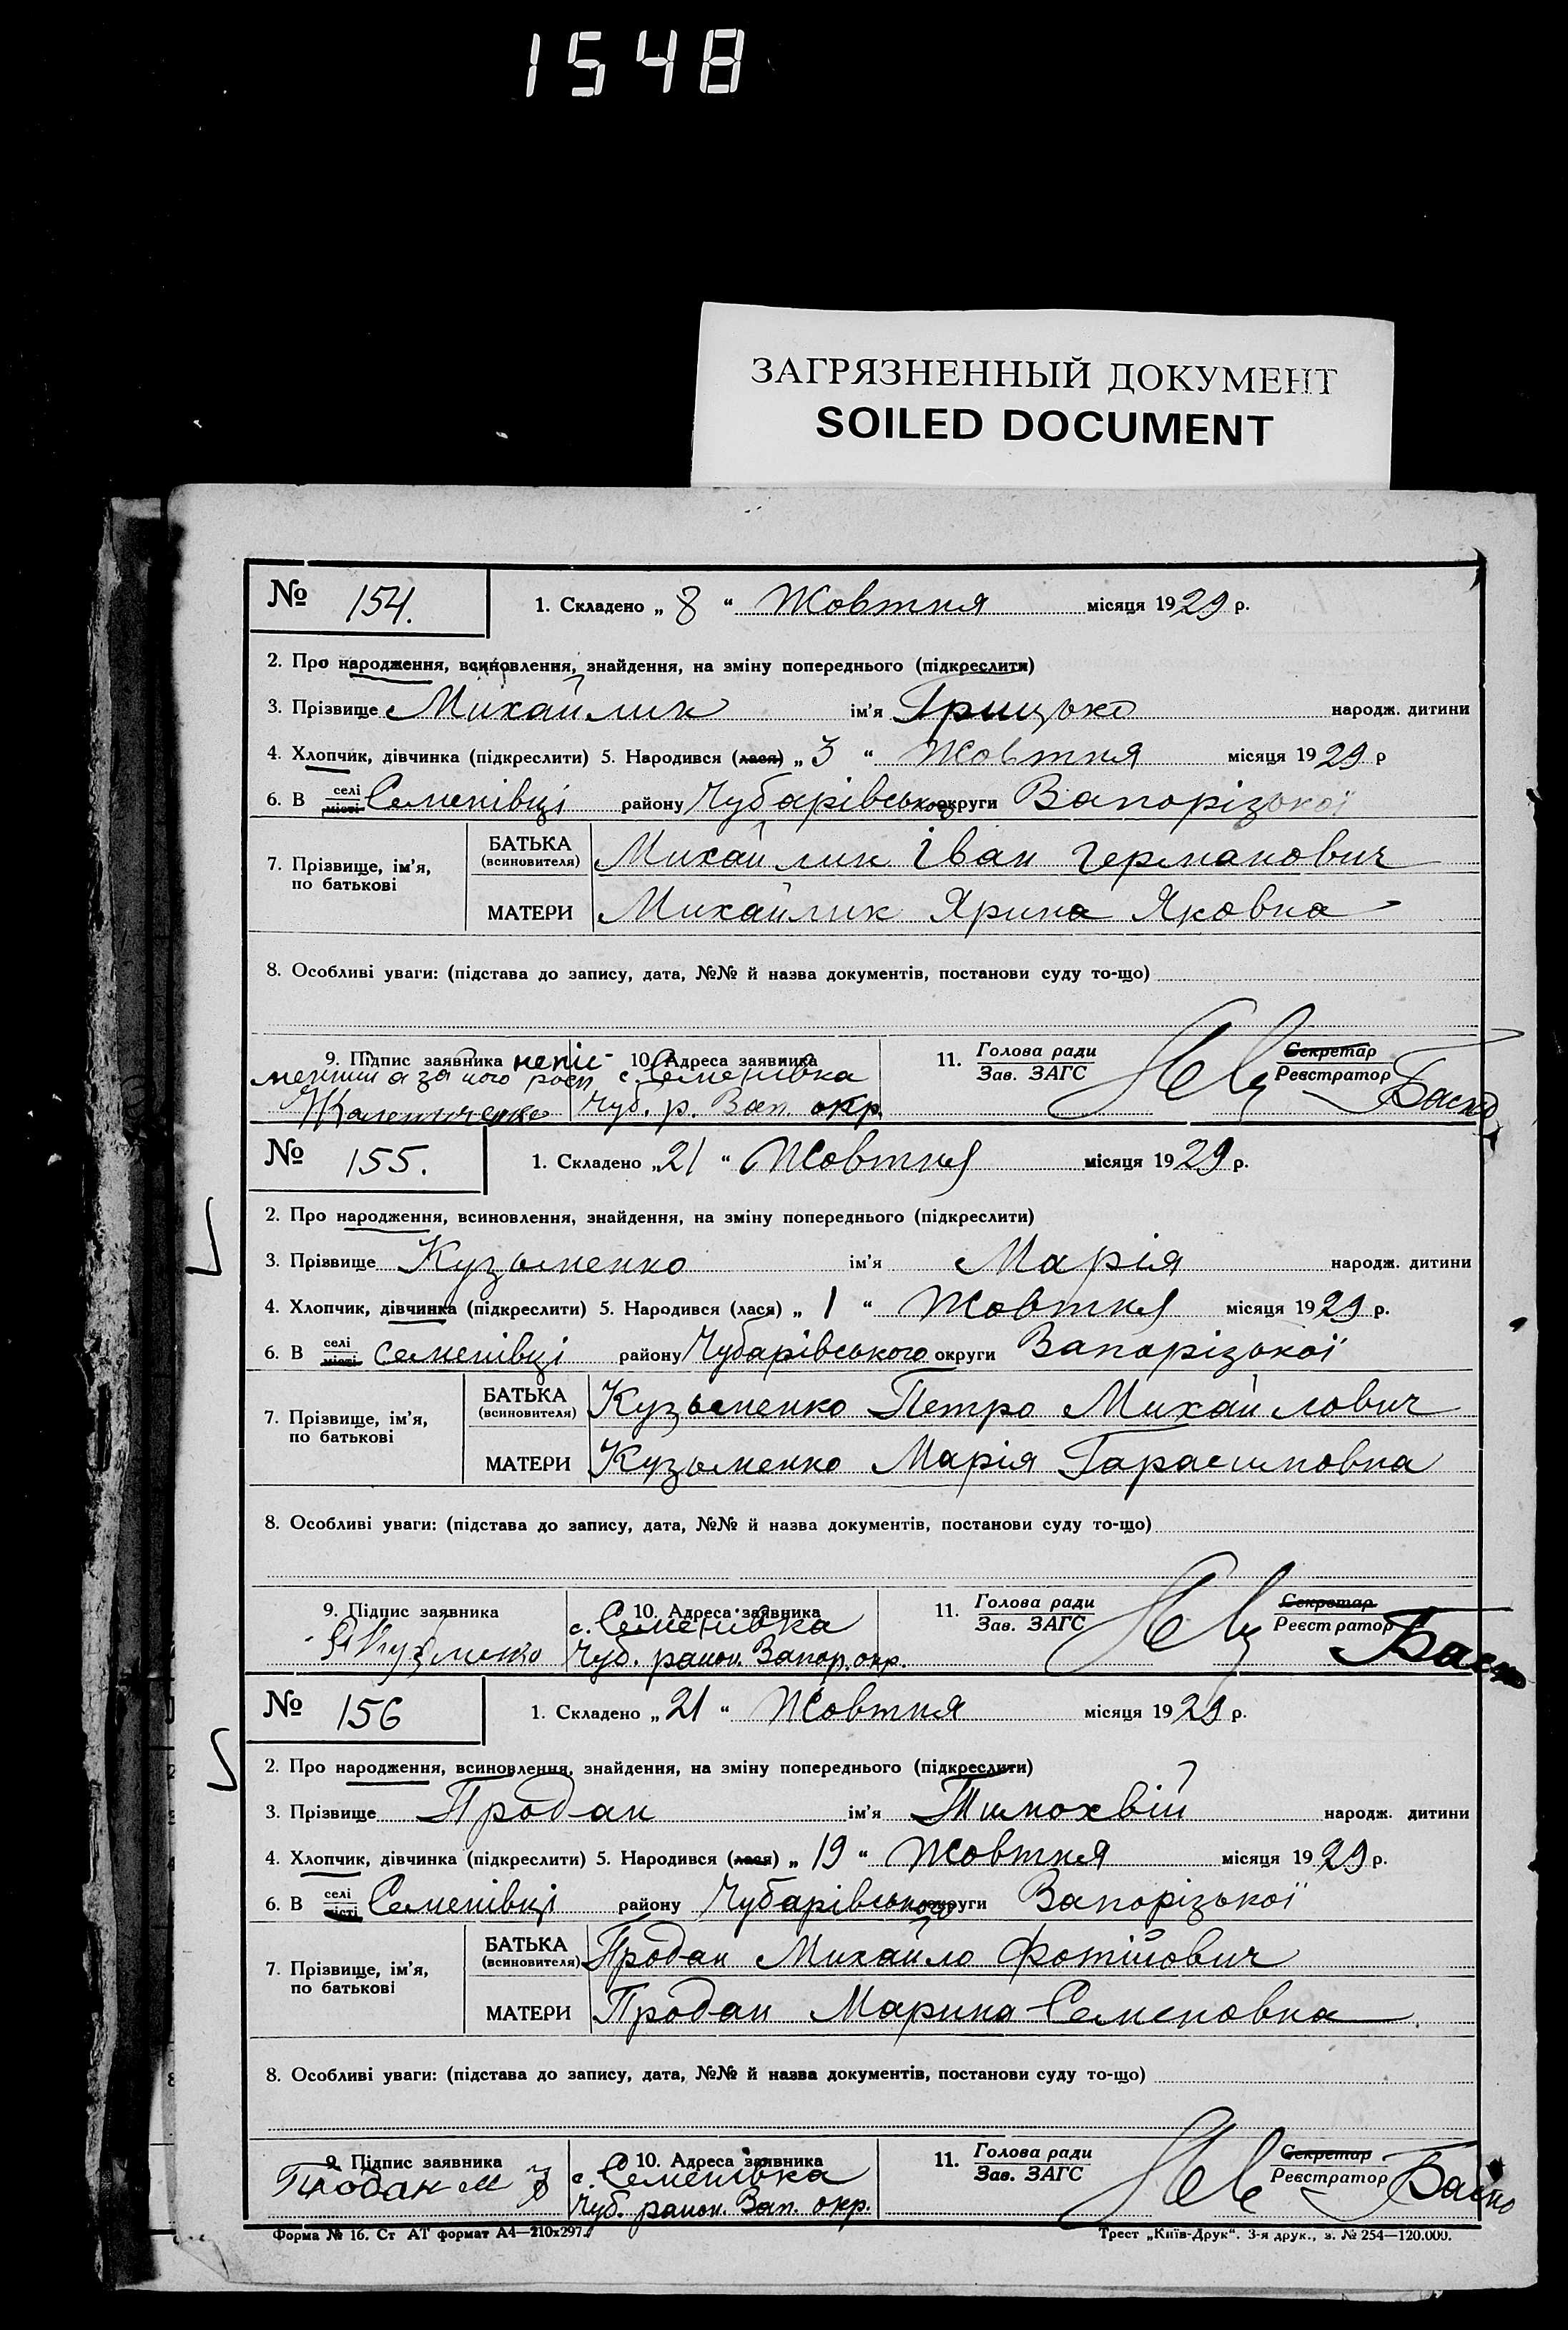 1548
ЗАГРЯЗНЕННЫЙ ДОКУМЕНТ
SOILED DOCUMENT
№ 154. 1. Складено „ 8 “ Жовтня місяця 1929 р.
2. Про народження, всиновлення, знайдення, на зміну попереднього (підкреслити)
3. Прізвище Михайлик ім'я Грицько народж. дитини
4. Хлопчик, дівчинка (підкреслити) 5. Народився (лася) „ 3 “ Жовтня місяця 1929 р
6. В селі місті Семенівці району Чубарівського округи Запорізької
7. Прізвище, ім'я, по батькові
БАТЬКА (всиновителя) Михайлик Іван Германович
МАТЕРИ Михайлик Ярина Яковна
8. Особливі уваги: (підстава до запису, дата, №№ й назва документів, постанови суду то-що)
9. Підпис заявника непис-
менний а за него росп.
10. Адреса заявника
с. Семенівка
Чуб. р. Зап. окр.
11. Голова ради Зав. ЗАГС
Секретар Реєстратор
№ 155. 1. Складено „ 21 “ Жовтня місяця 1929 р.
2. Про народження, всиновлення, знайдення, на зміну попереднього (підкреслити)
3. Прізвище Кузьменко ім'я Марія народж. дитини
4. Хлопчик, дівчинка (підкреслити) 5. Народився (лася) „ 1 “ Жовтня місяця 1929 р.
6. В селі місті Семенівці району Чубарівського округи Запорізької
7. Прізвище, ім'я, по батькові
БАТЬКА (всиновителя) Кузьменко Петро Михайлович
МАТЕРИ Кузьменко Марія Гарасимовна
8. Особливі уваги: (підстава до запису, дата, №№ й назва документів, постанови суду то-що)
9. Підпис заявника
10. Адреса заявника
с. Семенівка
Чуб. район. Запор. окр.
11. Голова ради Зав. ЗАГС
Секретар Реєстратор
№ 156 1. Складено „ 21 “ Жовтня місяця 1929 р.
2. Про народження, всиновлення, знайдення, на зміну попереднього (підкреслити)
3. Прізвище Продан ім'я Тимохвій народж. дитини
4. Хлопчик, дівчинка (підкреслити) 5. Народився (лася) „ 19 “ Жовтня місяця 1929 р.
6. В селі місті Семенівці району Чубарівського округи Запорізької
7. Прізвище, ім'я, по батькові
БАТЬКА (всиновителя) Продан Михайло Фотійович
МАТЕРИ Продан Марина Семеновна
8. Особливі уваги: (підстава до запису, дата, №№ й назва документів, постанови суду то-що)
9. Підпис заявника
Продан М
10. Адреса заявника
с. Семенівка
Чуб. район. Зап. окр.
11. Голова ради Зав. ЗАГС
Секретар Реєстратор
Форма № 16. Ст АТ формат А4—210х297.
Трест „Київ-Друк“. 3-я друк., з. № 254—120.000.